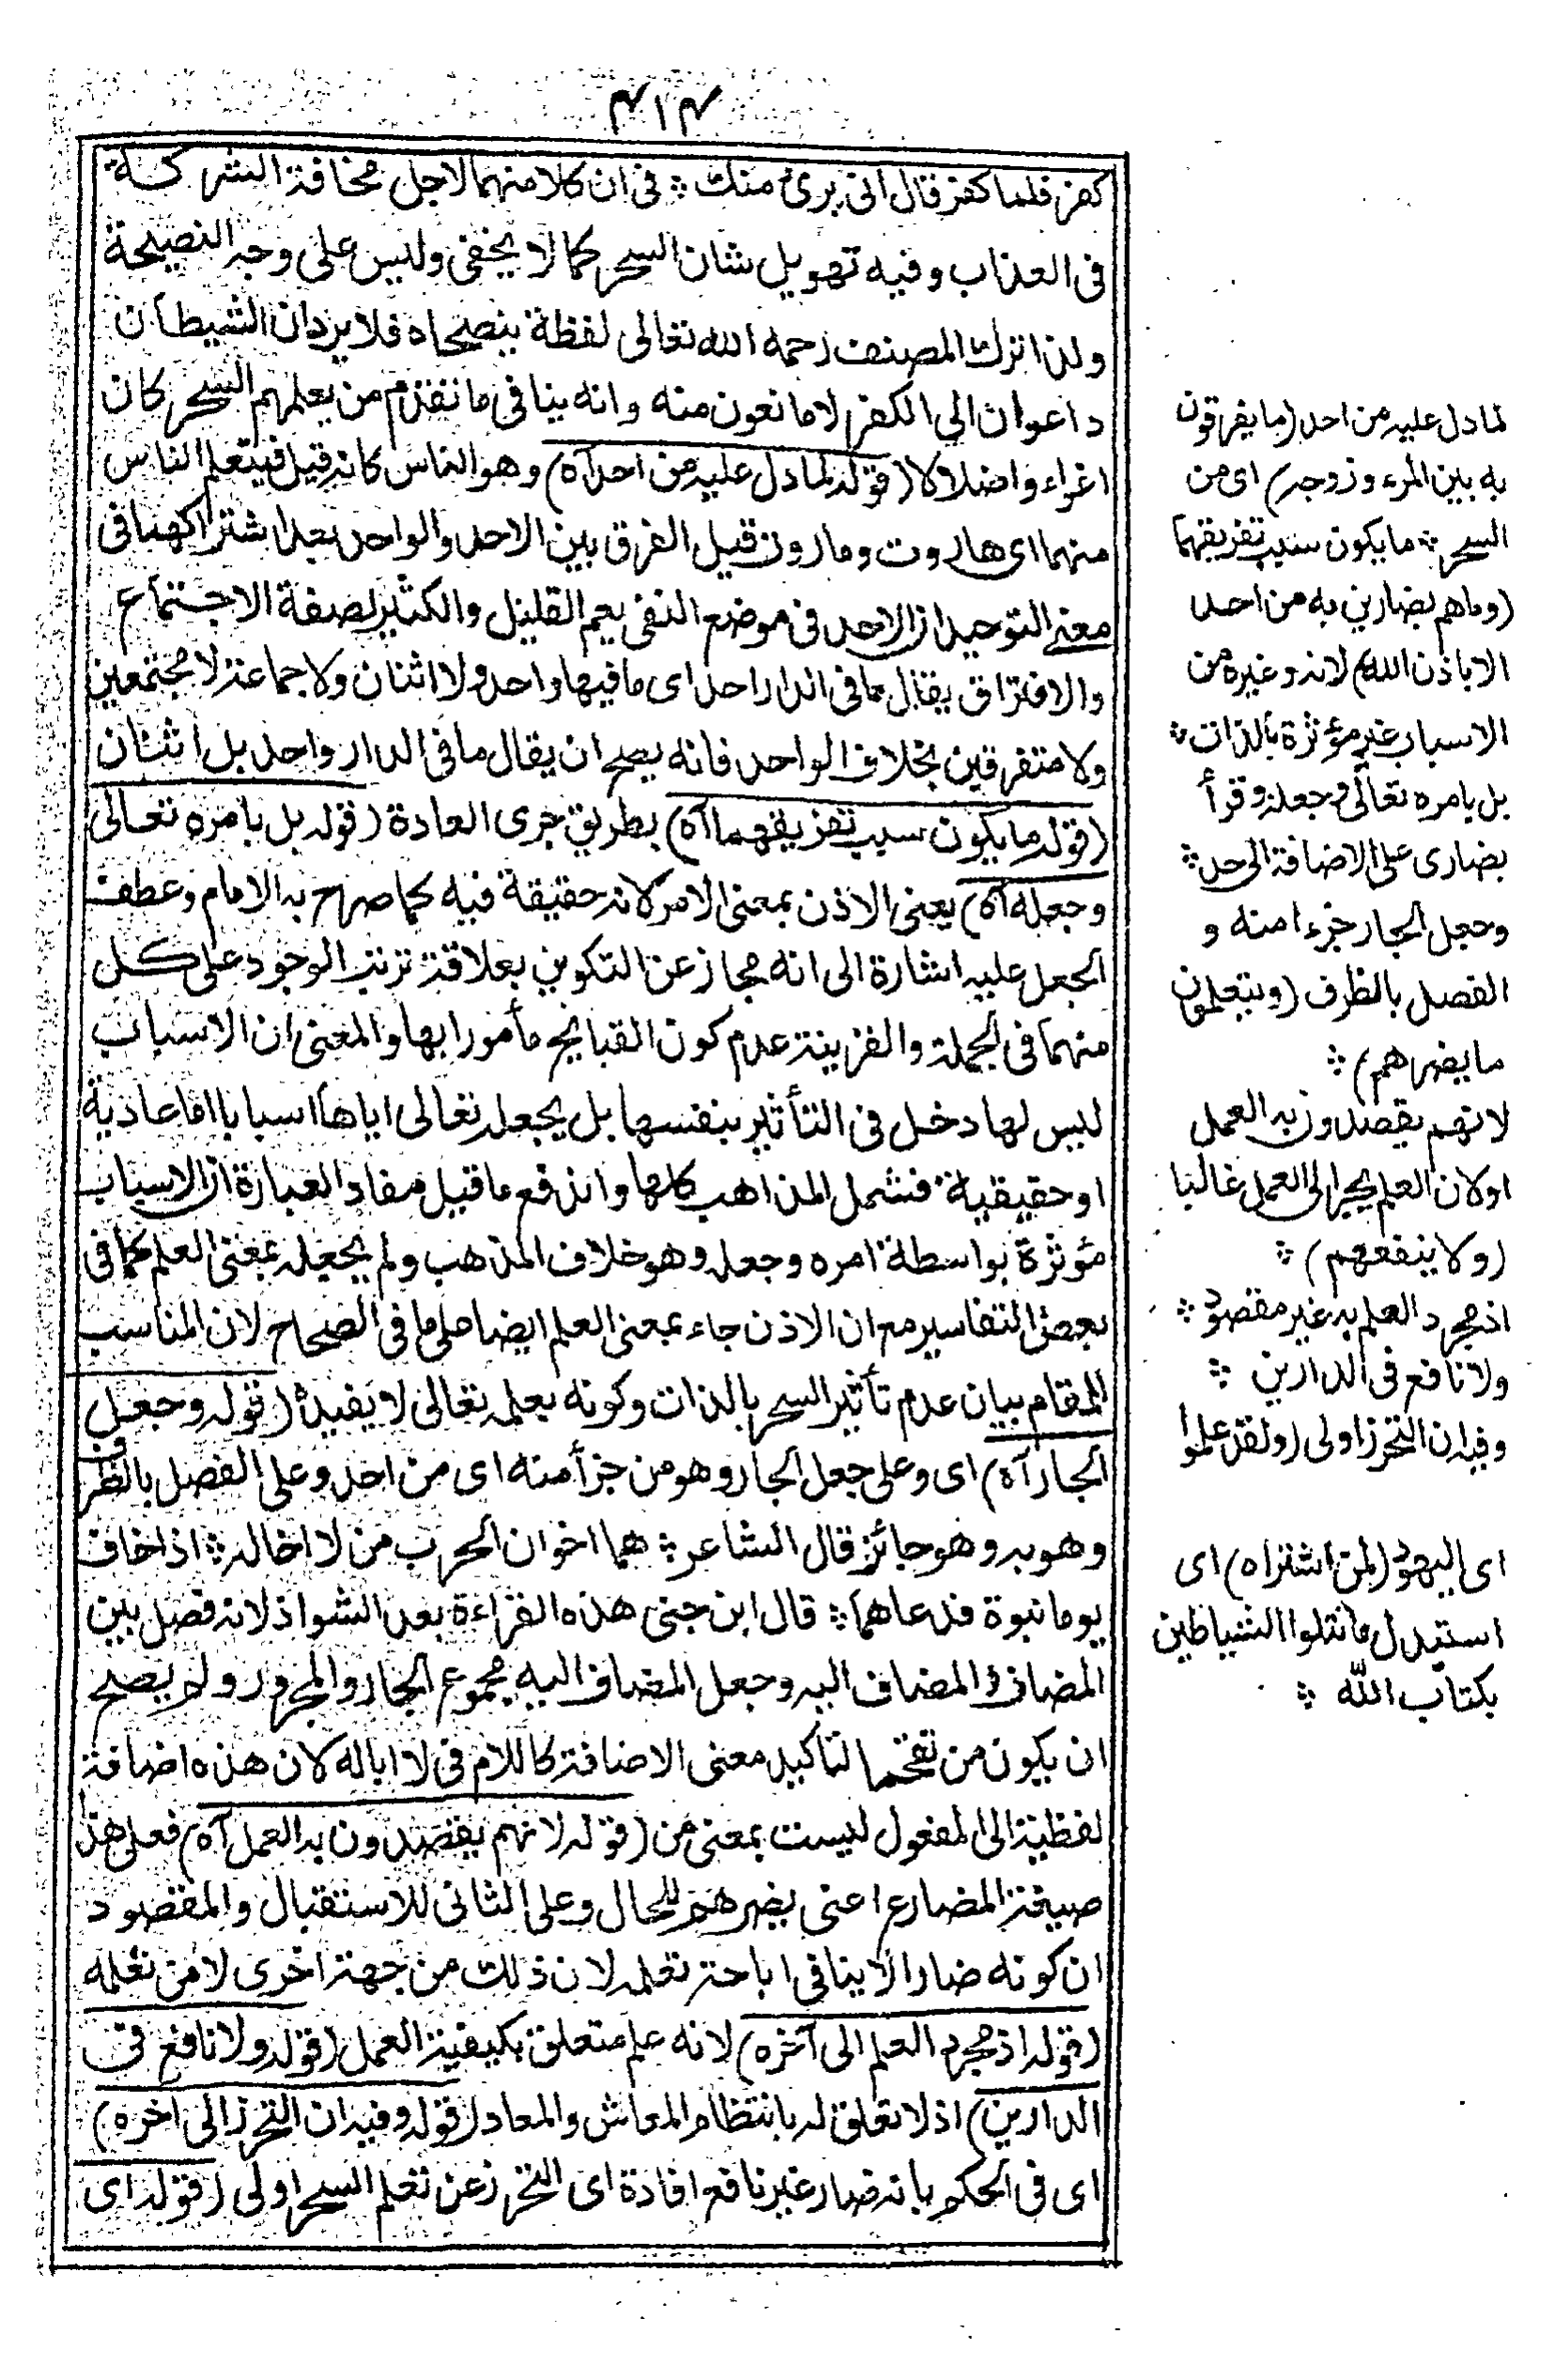 ٣١٣
كفر فلما كفر قال انى برىء منك ❊ فى ان كلا منهما لاجل مخافة الشركة
فى العذاب وفيه تهويل شان السحر كما لا يخفى وليس على وجه النصيحة
ولذا ترك المصنف رحمه الله تعالى لفظة ينصحاه فلا يرد ان الشيطان
داعوان الي الكفر لا مانعون منه وانه ينافى ما تقدم من يعلمهم السحر كان
اغراء واضلالا (قوله لما دل عليه من احد آه) وهو الناس كانه قيل فيتعلم الناس
منهما اى هاروت وماروت قيل الفرق بين الاحد والواحد بعد اشتراكهما فى
معنى التوحيد ان الاحد فى موضع النفى يعم القليل والكثير لصفة الاجتماع
والافتراق يقال ما فى الدار احد اى ما فيها واحد ولا اثنان ولا جماعة لا مجتمعين
ولا متفرقين بخلاف الواحد فانه يصح ان يقال ما فى الدار واحد بل اثنان
(قوله ما يكون سبب تفريقهما آه) بطريق جرى العادة (قوله بل بامره تعالى
وجعله آه) يعنى الاذن بمعنى الامر لانه حقيقة فيه كما صرح به الامام وعطف
الجعل عليه اشارة الى انه مجاز عن التكوين بعلاقة ترتب الوجود على كل
منهما فى الجملة والقرينة عدم كون القبايح مأمورا بها والمعنى ان الاسباب
ليس لها دخل فى التأثير بنفسها بل بجعله تعالى اياها اسبابا اما عادية
او حقيقية فشمل المذاهب كلها واندفع ما قيل مفاد العبارة ان الاسباب
مؤثرة بواسطة امره وجعله وهو خلاف المذهب ولم يجعله بمعنى العلم كما فى
بعض التفاسير مع ان الاذن جاء بمعنى العلم ايضا على ما فى الصحاح لان المناسب
للمقام بيان عدم تأثير السحر بالذات وكونه بعلمه تعالى لا يفيده (قوله وجعل
الجار آه) اى وعلى جعل الجار وهو من جزأ منه اى من احد وعلى الفصل بالظرف
وهو به وهو جائز قال الشاعر ❊ هما اخوان الحرب من لا اخاله ❊ اذا خاف
يوما نبوة فدعاهما ❊ قال ابن جنى هذه القراءة بعد الشواذ لانه فصل بين
المضاف والمضاف اليه وجعل المضاف اليه مجموع الجار والمجرور ولم يصح
ان يكون من مقحما لتاكيد معنى الاضافة كاللام فى لا اباله لان هذه اضافة
لفظية الى المفعول ليست بمعنى من (قوله لانهم يقصدون به العمل آه) فعلى هذا
صيغة المضارع اعنى يضرهم للحال وعلى الثانى للاستقبال والمقصود
ان كونه ضارا لا ينافى اباحة تعلمه لان ذلك من جهة اخرى لا من تعلمه
(قوله اذ مجرد العلم الى آخره) لانه علم متعلق بكيفية العمل (قوله ولا نافع فى
الدارين) اذ لا تعلق له بانتظام المعاش والمعاد (قوله وفيه ان التحرز الى اخره)
اى فى الحكم بانه ضار غير نافع افادة اى التحرز عن تعلم السحر اولى (قوله اى
لما دل عليه من احد (ما يفرقون
به بين المرء وزوجه) اى من
السحر ❊ ما يكون سبب تفريقهما
(وما هم بضارين به من احد
الا باذن الله) لانه وغيره من
الاسباب غير مؤثرة بالذات ❊
بل بامره تعالى وجعله وقرأ
بضارى على الاضافة الى احد ❊
وجعل الجار جزءا منه و
الفصل بالظرف (ويتعلمون
ما يضرهم) ❊
لانهم يقصدون به العمل
او لان العلم يجر الى العمل غالبا
(ولا ينفعهم) ❊
اذ مجرد العلم به غير مقصود ❊
ولا نافع فى الدارين ❊
وفيه ان التحرز اولى (ولقد علموا
اى اليهود (لمن اشتراه) اى
استبدل ما تتلوا الشياطين
بكتاب الله ❊